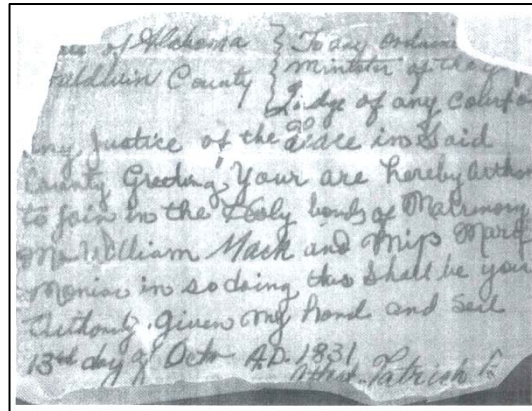 of Alabama } To any Ordain
Baldwin County } Minister of the
Judge of any Court
any Justice of the Peace in said
County Greeting, Your are hereby Author
to join in the Holy bonds of Matrimony
Mr. William Mack and Miss Mary
Moniac in so doing this Shall be your
Authority. Given my hand and Seal
13th day of Octr A.D. 1831
Attest. Patrick